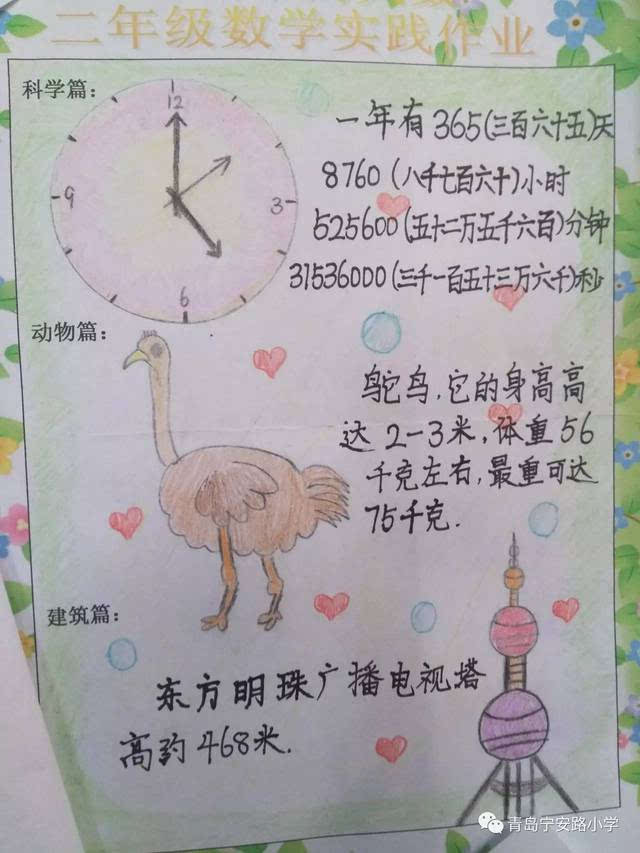 二年级数学实践作业
科学篇：
12
3
6
9
一年有365(三百六十五)天
8760(八千七百六十)小时
525600(五十二万五千六百)分钟
31536000(三千一百五十三万六千)秒
动物篇：
鸵鸟,它的身高高
达2-3米,体重56
千克左右,最重可达
75千克.
建筑篇：
东方明珠广播电视塔
高约468米.
青岛宁安路小学